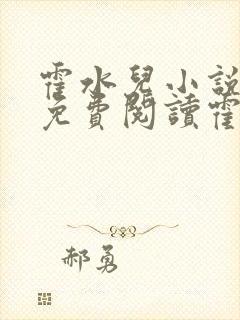 霍水兒小說
免費閱讀霍
郝勇